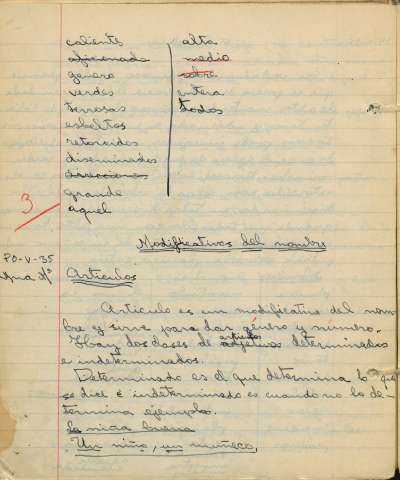 caliente
aficionada
genero
verdes
terrosas
esbeltos
retorcidos
diseminados
direcciones
grande
aquel
alta
medio
sobre
entera
todos
3
Modificativos del nombre
20-V-35
Articulos
Articulo es un modificativo del nom-
bre y sirve para dar género y número.
Hay dos clases de adjetivos articulos determinados
e indeterminados.
Determinado es el que determina lo que
se dice e indeterminado es cuando no lo de-
termina ejemplo.
La niña buena
Un niño, un muñeco,